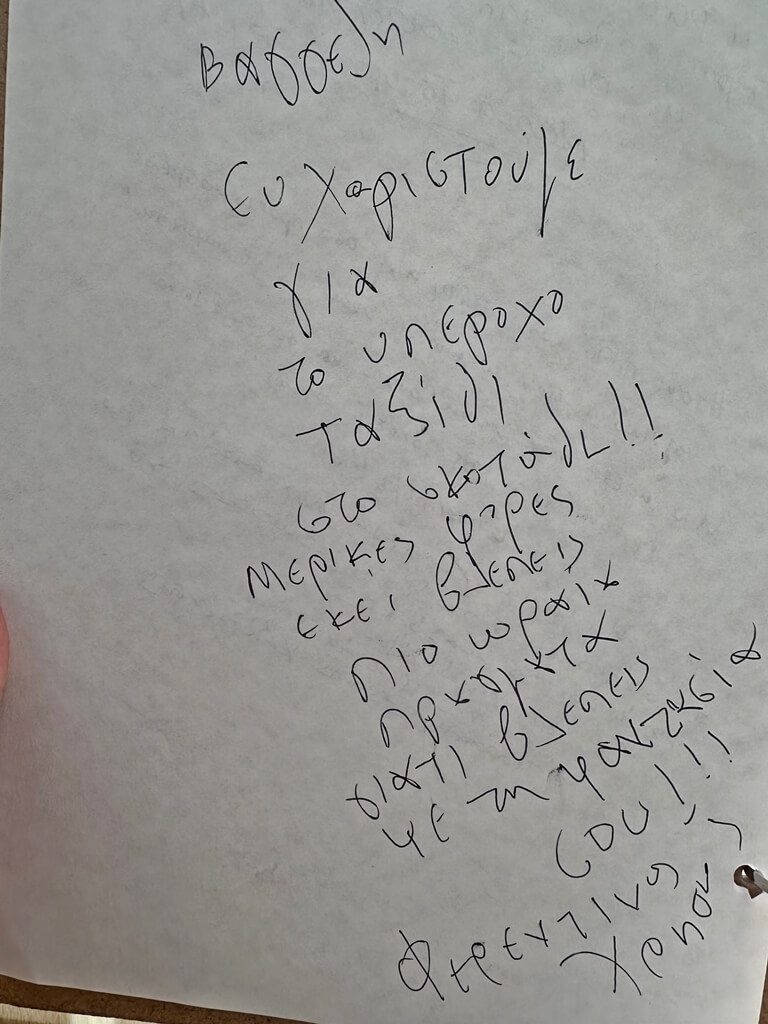 Βαγγέλη
ευχαριστούμε
για
το υπεροχο
ταξίδι
στο σκοτάδι!!
Μερικες φορες
εκει βλεπεις
πιο ωραια
πραγματα
γιατι βλεπεις
με τη φαντασία
σου!!!